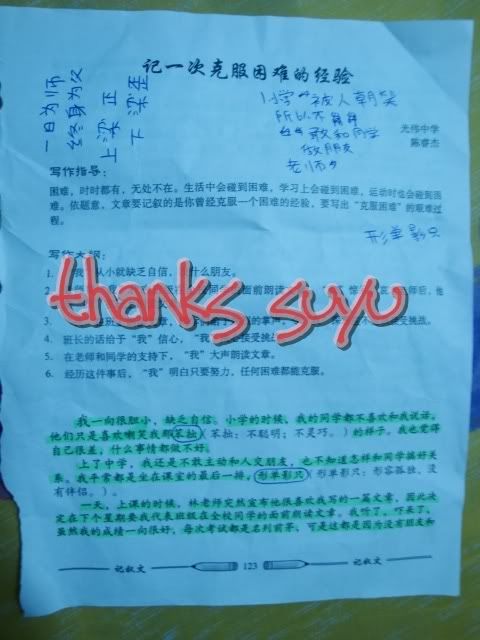 记一次克服困难的经验
一日为师
终身为父
上梁正
下梁歪
小学 被人朝笑
所以不
敢和同学
做朋友
老师
无伟中学
陈睿杰
写作指导：
困难，时时都有，无处不在。生活中会碰到困难，学习上会碰到困难，运动时也会碰到困
难。依题意，文章要记叙的是你曾经克服一个困难的经验，要写出“克服困难”的艰难过
程。
形单影只
写作大纲：
1. “我”从小就缺乏自信，什么朋友。
2. 同 面前朗读 老师后，他
thanks suyu
3. 章， 的掌声， 接受挑战。
4. 班长的话给于“我”信心，“我” 接受挑
5. 在老师和同学的支持下，“我”大声朗读文章。
6. 经历这件事后，“我”明白只要努力，任何困难都能克服。
我一向很胆小，缺乏自信。小学的时候，我的同学都不喜欢和我说话。
他们只是喜欢嘲笑我那笨拙（笨拙：不聪明；不灵巧。）的样子。我也觉得
自己很差，什么事情都做不好。
上了中学，我还是不敢主动和人交朋友，也不知道怎样和同学搞好关
系。我平常都是坐在课室的最后一排，形单影只（形单影只：形容孤独，没
有伴侣。）。
一天，上课的时候，林老师突然宣布他很喜欢我写的一篇文章，因此决
定在下个星期要我代表班级在全校同学的面前朗读文章。我听了，吓呆了。
虽然我的成绩一向很好，每次考试都是名列前茅，可是这都是因为没有朋友和
记叙文 123 记叙文